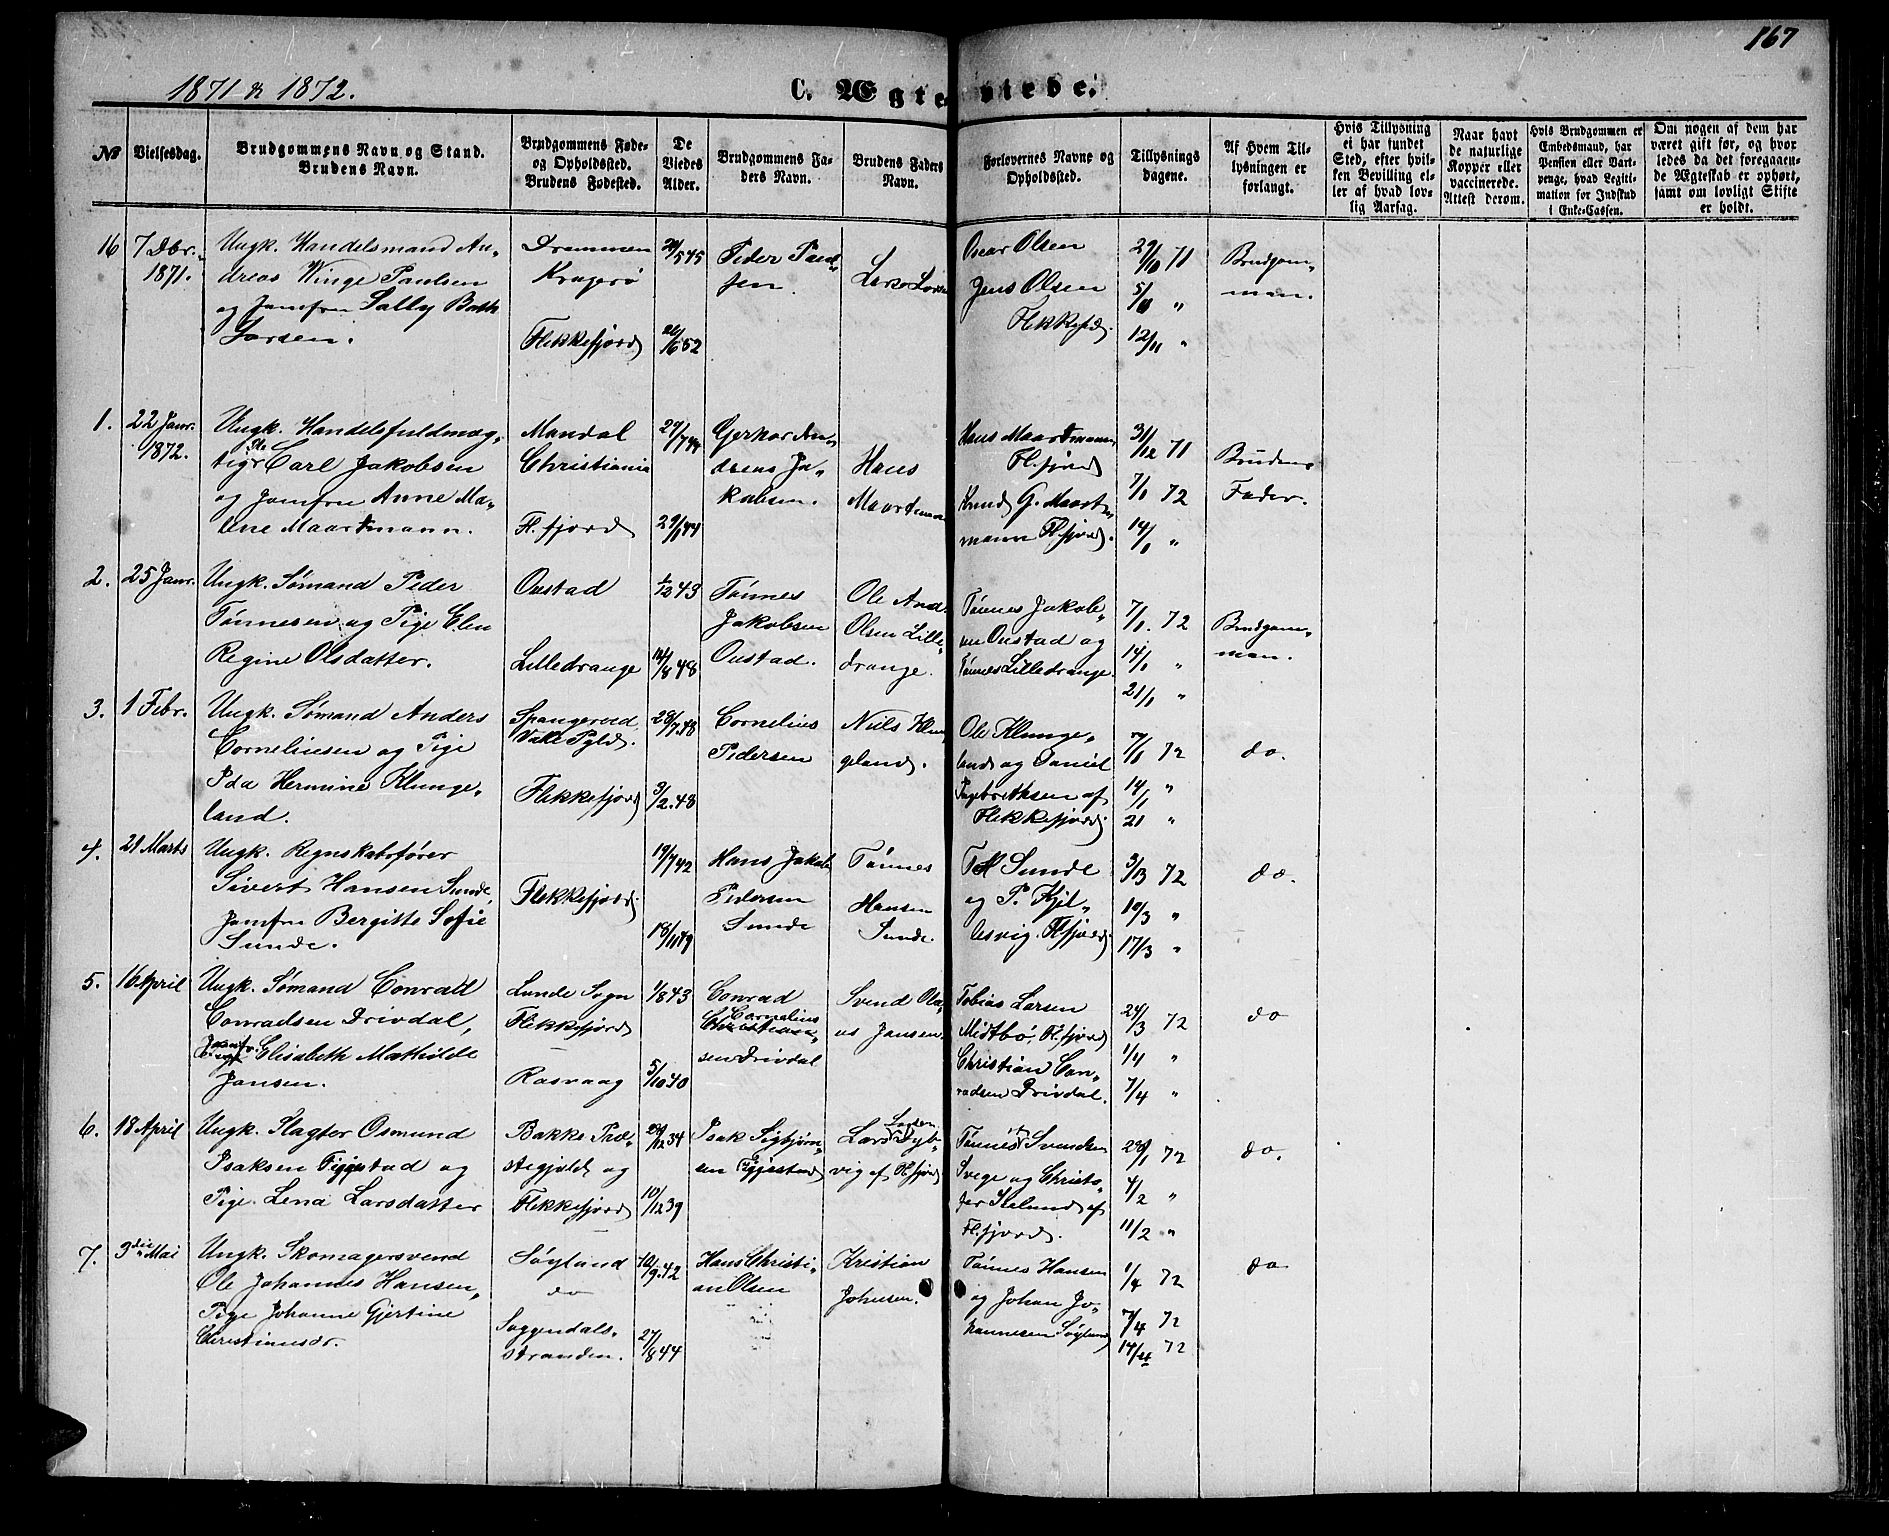 167
1871 & 1872.
C. Ægteviede.
No
Vielsesdag.
Brudgommens Navn og Stand.
Brudens Navn.
Brudgommens Føde-
og Opholdssted.
Brudens Fødested.
De
Viedes
Alder.
Brudgommens Fa-
ders Navn.
Brudens Faders
Navn.
Forlovernes Navne og
Opholdssted.
Tillysnings
dagene.
Af Hvem Til-
lysningen er
forlangt.
Hvis Tillysning
ei har fundet
Sted, efter hvil-
ken Bevilling el-
ler af hvad lov-
lig Aarsag.
Naar havt
de naturlige
Kopper eller
vaccinerede.
Attest derom.
Hvis Brudgommen er
Embedsmand, har
Pension eller Vart-
penge, hvad Legiti-
mation for Indskud
i Enke-Cassen.
Om nogen af dem har
været gift før, og hvor
ledes da det foregaaen-
de Ægteskab er ophørt,
samt om lovligt Skifte
er holdt.
16
7 Dbr.
1871.
Ungk. Handelsmand An-
dreas Winge Paulsen
og Jomfru Sally Bath
Larsen.
Drammen
Kragerø
Flekkefjord
24/5 45
26/6 52
Peder Paul-
sen.
Lars Larsen
Oscar Olsen
Jens Olsen
Flekkefjd.
29/10 71
5/11 "
12/11 "
Brudgom-
men.
1.
22 Janr.
1872.
Ungk. Handelsfuldmæg-
tig Carl Jakobsen
og Jomfru Anne Ma-
lene Maartmann.
Mandal
Christiania
Fl. fjord
29/1 44
Gerhard An-
dreas Ja-
kobsen.
Hans
Maartmann
Hans Maartmann
Fl. fjord
Knud G. Maart-
mann Fl. fjord.
31/12 71
7/1 72
14/1 "
Brudens
Fader.
2.
25 Janr.
Ungk. Sømand Peder
Tønnesen og Pige Elen
Regine Olsdatter.
Oustad
Lilledrange
1/12 43
14/8 48
Tønnes
Jakobsen
Oustad.
Ole And.
Olsen Lille-
drange.
Tønnes Jakob-
sen Oustad og
Tønnes Lilledrange.
7/1. 72
14/1 "
21/1 "
Brudgom-
men.
3.
1 Febr.
Ungk. Sømand Anders
Corneliusen og Pige
Ida Hermine Klunge-
land.
Spangereid
Valle Pgld.
Flekkefjord
28/7 48
3/2. 48
Cornelius
Pedersen
Niels Klun-
geland.
Ole Klunge-
land og Daniel
Ingebrethsen af
Flekkefjord.
7/1 72
14/1 "
21 "
do.
4.
21 Marts
Ungk. Regnskabsfører
Sivert Hansen Sunde,
Jomfru Bergitte Sofie
Sunde.
Flekkefjord.
19/7 42
18/11 49
Hans Jakob
Pedersen
Sunde
Tønnes
Hansen
Sunde.
T H Sunde
og P. Kjel-
lesvig. Fl. fjord.
3/3 72
10/3 "
17/3 "
do.
5.
16 April
Ungk. Sømand Conrad
Conradsen Drivdal,
Jomfr. Elisabeth Mathilde
Jansen.
Lunde Sogn
Flekkefjord
Rasvaag
1/8 43
5/10 40
Conrad
Cornelius
Christian-
sen Drivdal
Svend Ola-
us Jansen.
Tobias Larsen
Midtbø, Fl. fjord
Christian Con-
radsen Drivdal.
24/3 72
1/4 "
7/4 "
do
6.
18 April
Ungk. Slagter Osmund
Isaksen Tjggestad og
Pige Lena Larsdatter
Bakke Præ-
stegjeld og
Flekkefjord
10/12 39
Isak Sigbjørn-
sen
Lars
vig af Fl. fjord
Tønnes Svendsen
Svege og Christo-
fer Stelund af
Fl. fjord.
28/1 72
4/2 "
11/2 "
do.
7.
3die Mai
Ungk. Skomagersvend
Ole Johannes Hansen,
Pige Johanne Gjertine
Christiansdr.
Søgland
do
Soggendals-
stranden.
10/9. 42
27/8 44
Hans Christi-
an Olsen
Kristian
Johnsen.
Tønnes Hansen
og Johan Jo-
hannesen Søgland
1/4 72
7/4 72
14/4 72
do